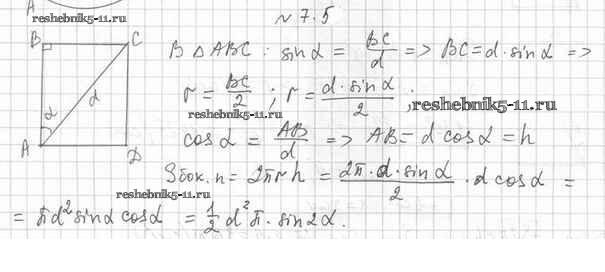 A
reshebnik5-11.ru
№ 7.5
B C
α d
A D
В △ ABC : sin α = BC/d => BC = d·sin α =>
r = BC/2 ; r = d·sin α/2 .
reshebnik5-11.ru
,reshebnik5-11.ru
cos α = AB/d => AB = d cos α = h
Sбок. п. = 2πrh = 2π·d·sin α/2 · d cos α =
reshebnik5-11.ru
= πd² sin α cos α = 1/2 d² π · sin 2α.